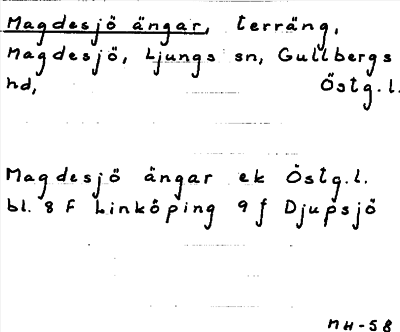 Magdesjö ängar, terräng,
Magdesjö, Ljungs sn, Gullbergs
hd, Östg.l.
Magdesjö ängar ek Östg.l.
bl. 8 F Linköping 9 f Djupsjö
MH-58